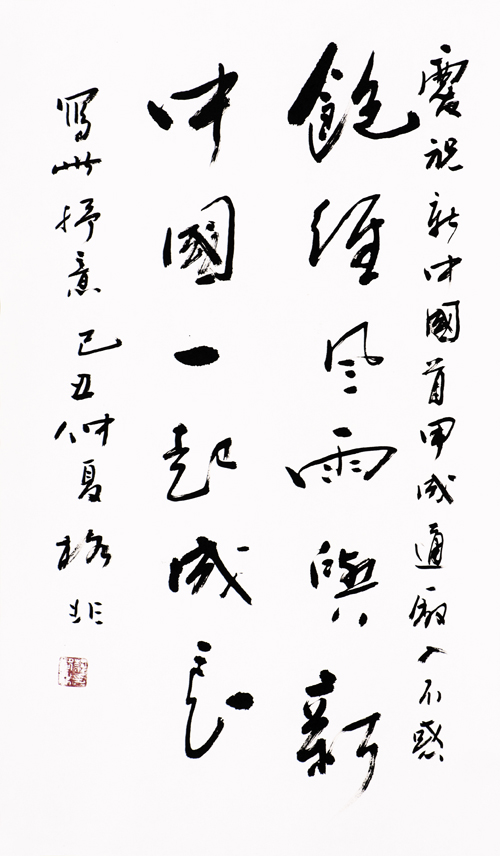 慶祝新中國首甲成適入不惑
飽經風雨與新
中國一起成長
寫此抒意己丑仲夏格非